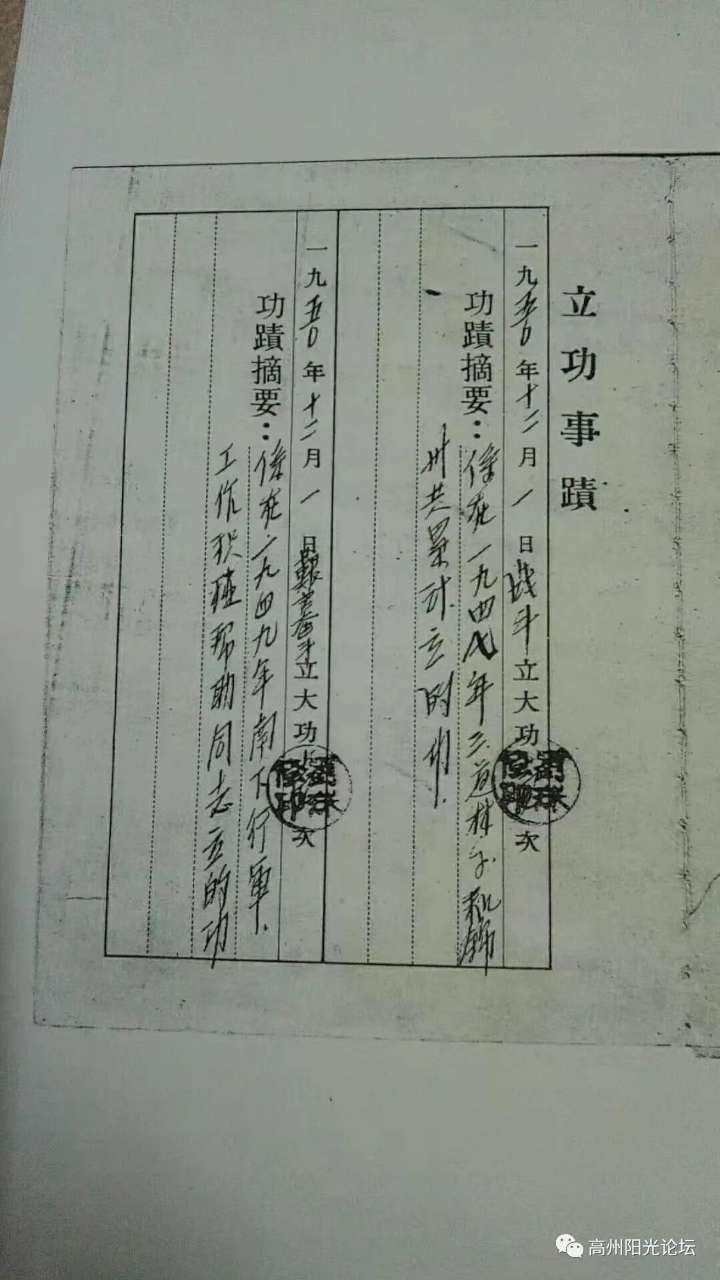 立功事蹟
一九五〇年十二月一日战斗立大功 次
功蹟摘要：係在一九四八年三道林子和錦
州共累计立的功.
一九五〇年十二月一日艱苦奮斗立大功 次
功蹟摘要：係在一九四九年南下行軍.
工作积極帮助同志立的功
高州阳光论坛